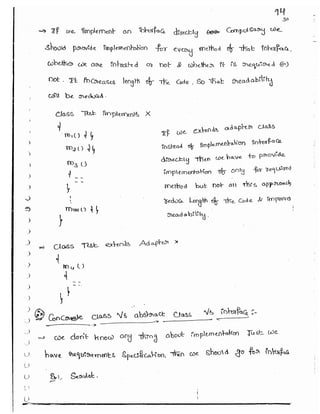 94
→ If we implement an interface directly Compulsory we
should provide implementation for every method of that interface,
whether we are intrested or not & whether it is required (or)
not. It increases length of the Code, So that readability
will be reduced.
class Test implements X
{
m1() { }
m2() { }
m3()
{
- -
}
m1000() { }
}
If we extends adapter class
instead of implementation interface
directly then we have to provide
implementation of only for required
method but not all this approach
reduce length of the code & improves
readability.
⇒ Class Test extends Adapter X
{
m4()
{
- -
}
}
Concrete class Vs abstract class Vs interface :-
→ we don't know any thing about implementation Just we
have requirements Specification, then we should go for interface
Ex, Servlet.